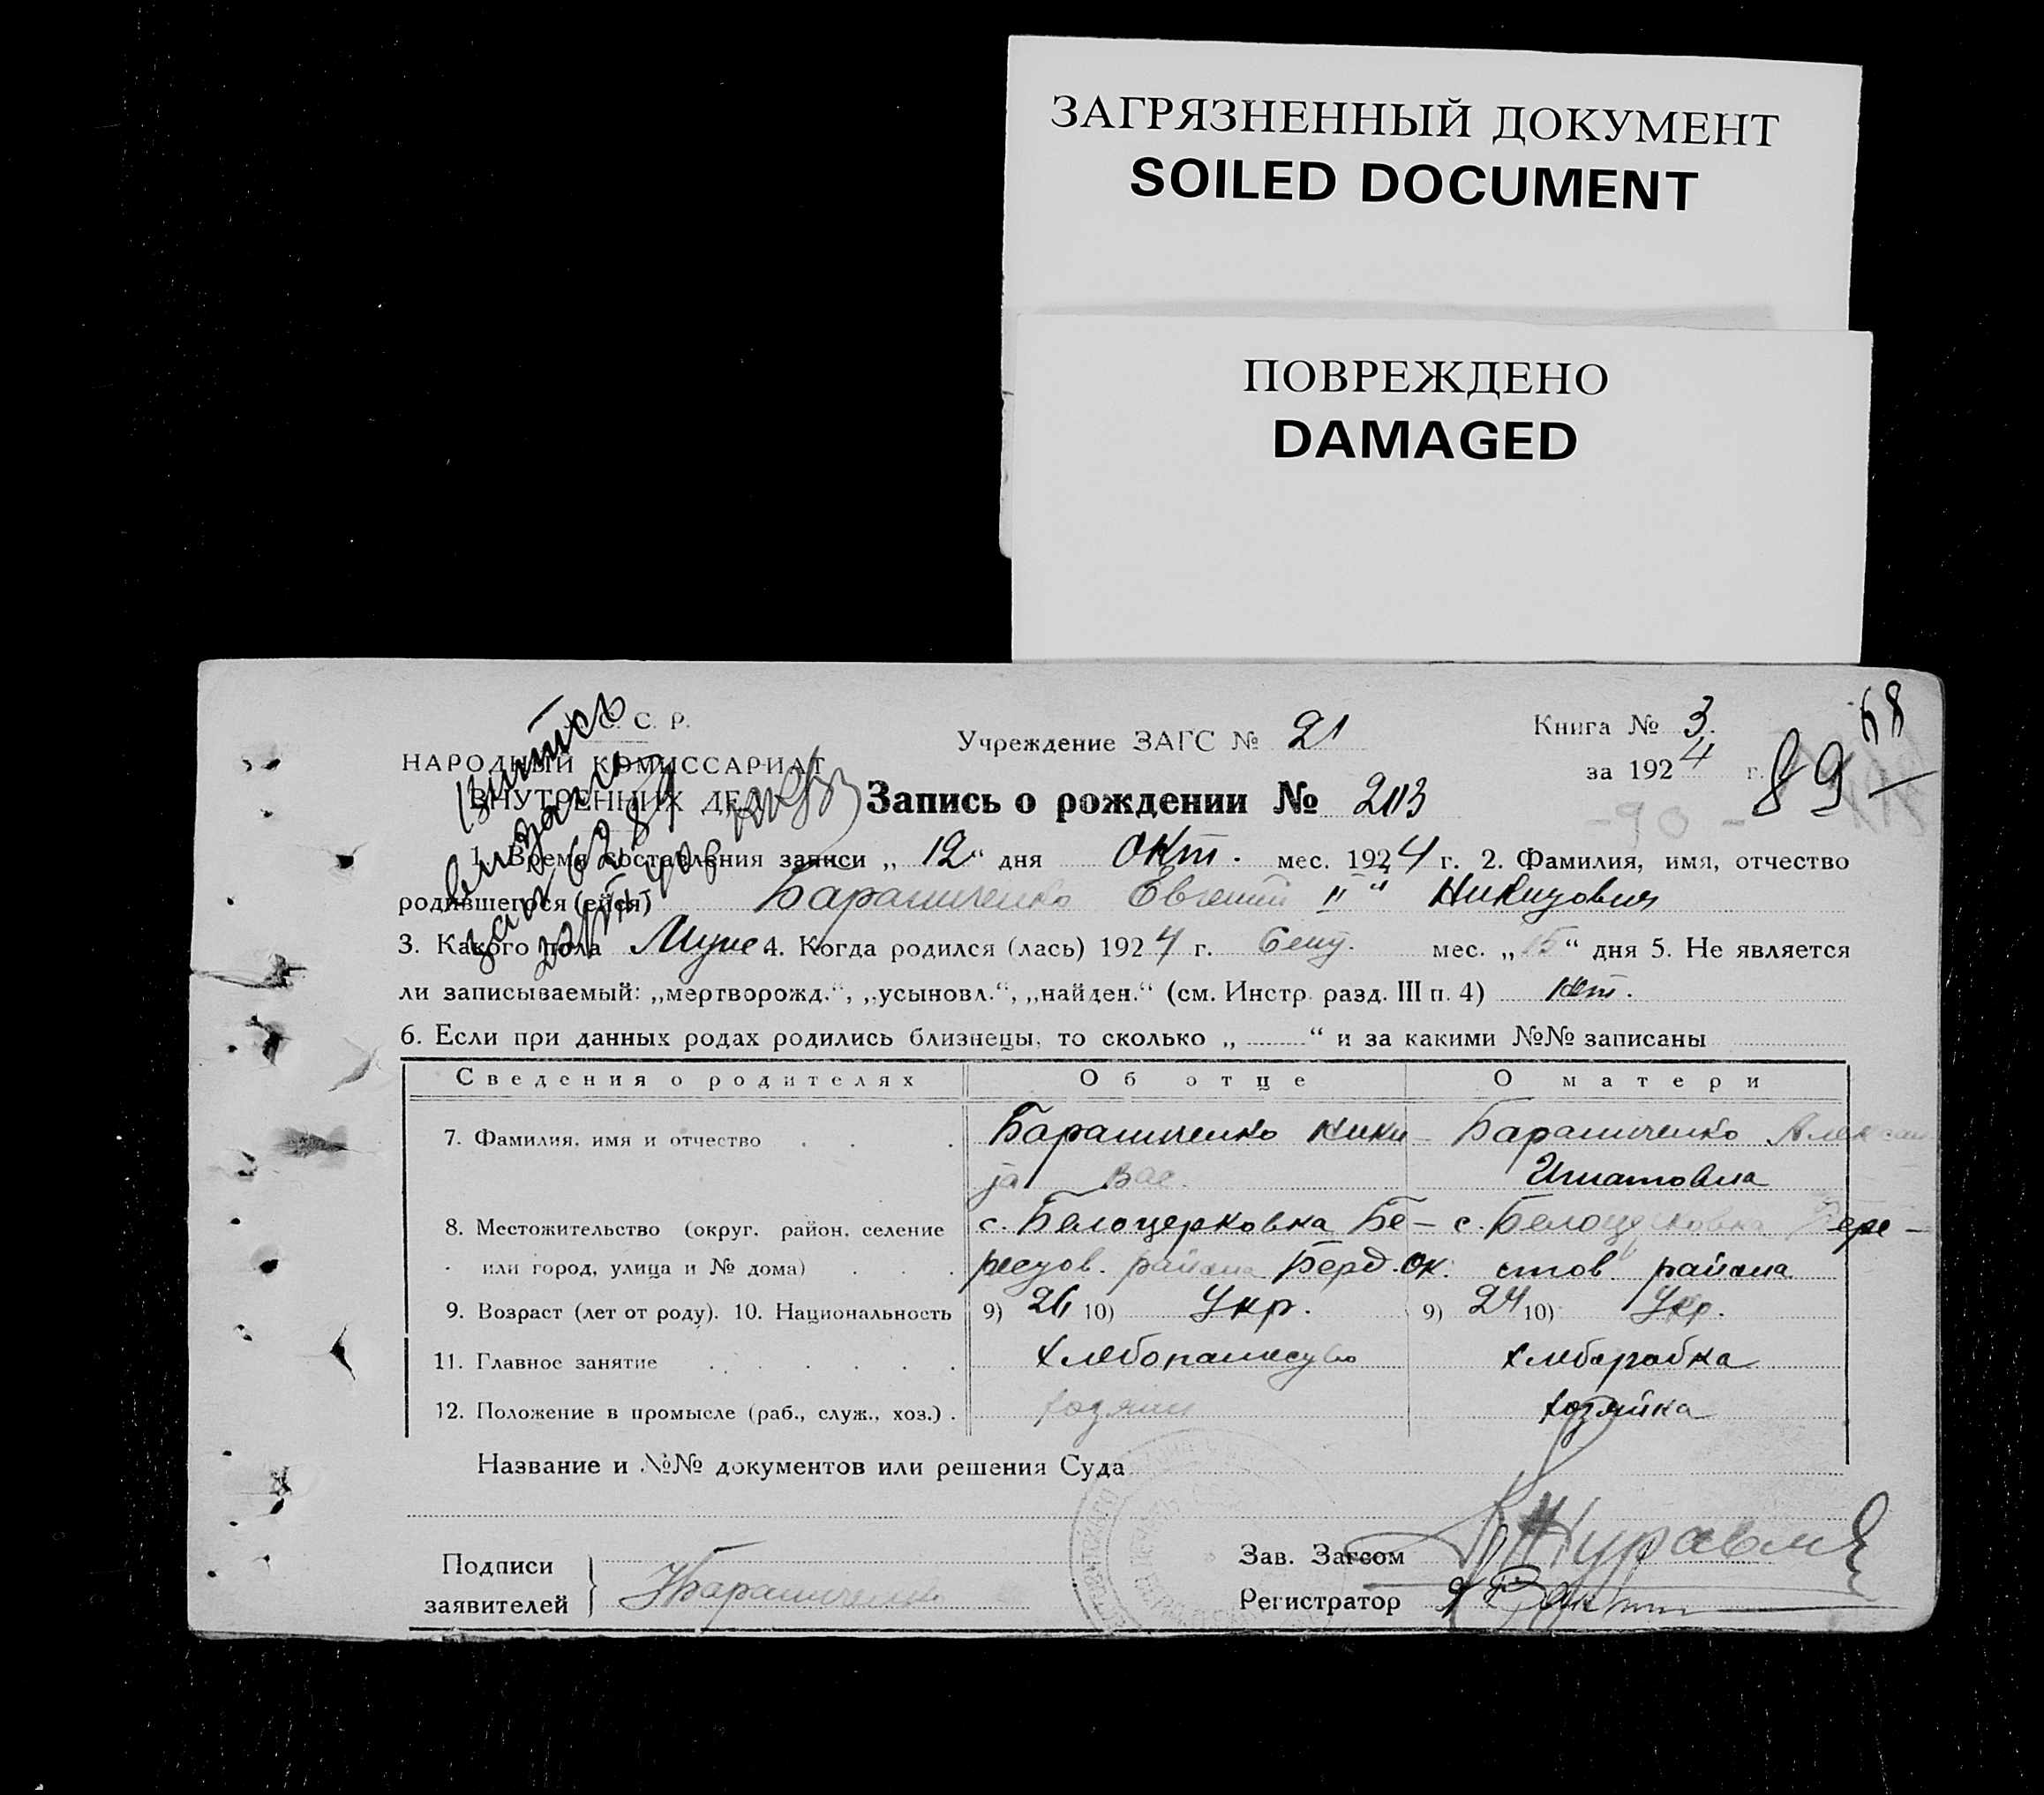 ЗАГРЯЗНЕННЫЙ ДОКУМЕНТ
SOILED DOCUMENT
ПОВРЕЖДЕНО
DAMAGED
С. С. Р.
НАРОДНЫЙ КОМИССАРИАТ
ВНУТРЕННИХ ДЕЛ
Учреждение ЗАГС № 21
Книга № 3.
за 1924 г.
68
89
- 90 -
Запись о рождении № 203
1. Время составления записи „ 12 “ дня окт. мес. 1924 г. 2. Фамилия, имя, отчество
родившегося (ейся) Барашненко Евгений
3. Какого пола Муже 4. Когда родился (лась) 1924 г. Сент. мес. „ 15 “ дня 5. Не является
ли записываемый: „мертворожд.“, „усыновл.“, „найден.“ (см. Инстр. разд. III п. 4) нет.
6. Если при данных родах родились близнецы, то сколько „ “ и за какими №№ записаны
Сведения о родителях Об отце О матери
7. Фамилия, имя и отчество Барашненко Барашненко Алексан
Вас. Игнатовна
8. Местожительство (округ, район, селение с. Белоцерковка Бе- с. Белоцерковка Бере-
или город, улица и № дома) района Берд. ок. стов района
9. Возраст (лет от роду). 10. Национальность 9) 26 10) Укр. 9) 24 10) Укр.
11. Главное занятие хлебопашество хлеборобка
12. Положение в промысле (раб., служ., хоз.) . хозяин хозяйка
Название и №№ документов или решения Суда
Подписи
заявителей Барашненко
Зав. Загсом
Регистратор